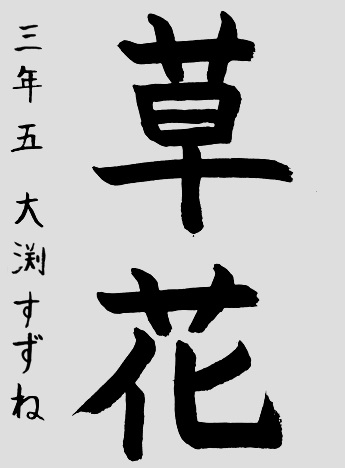 草花
三年五 大渕すずね